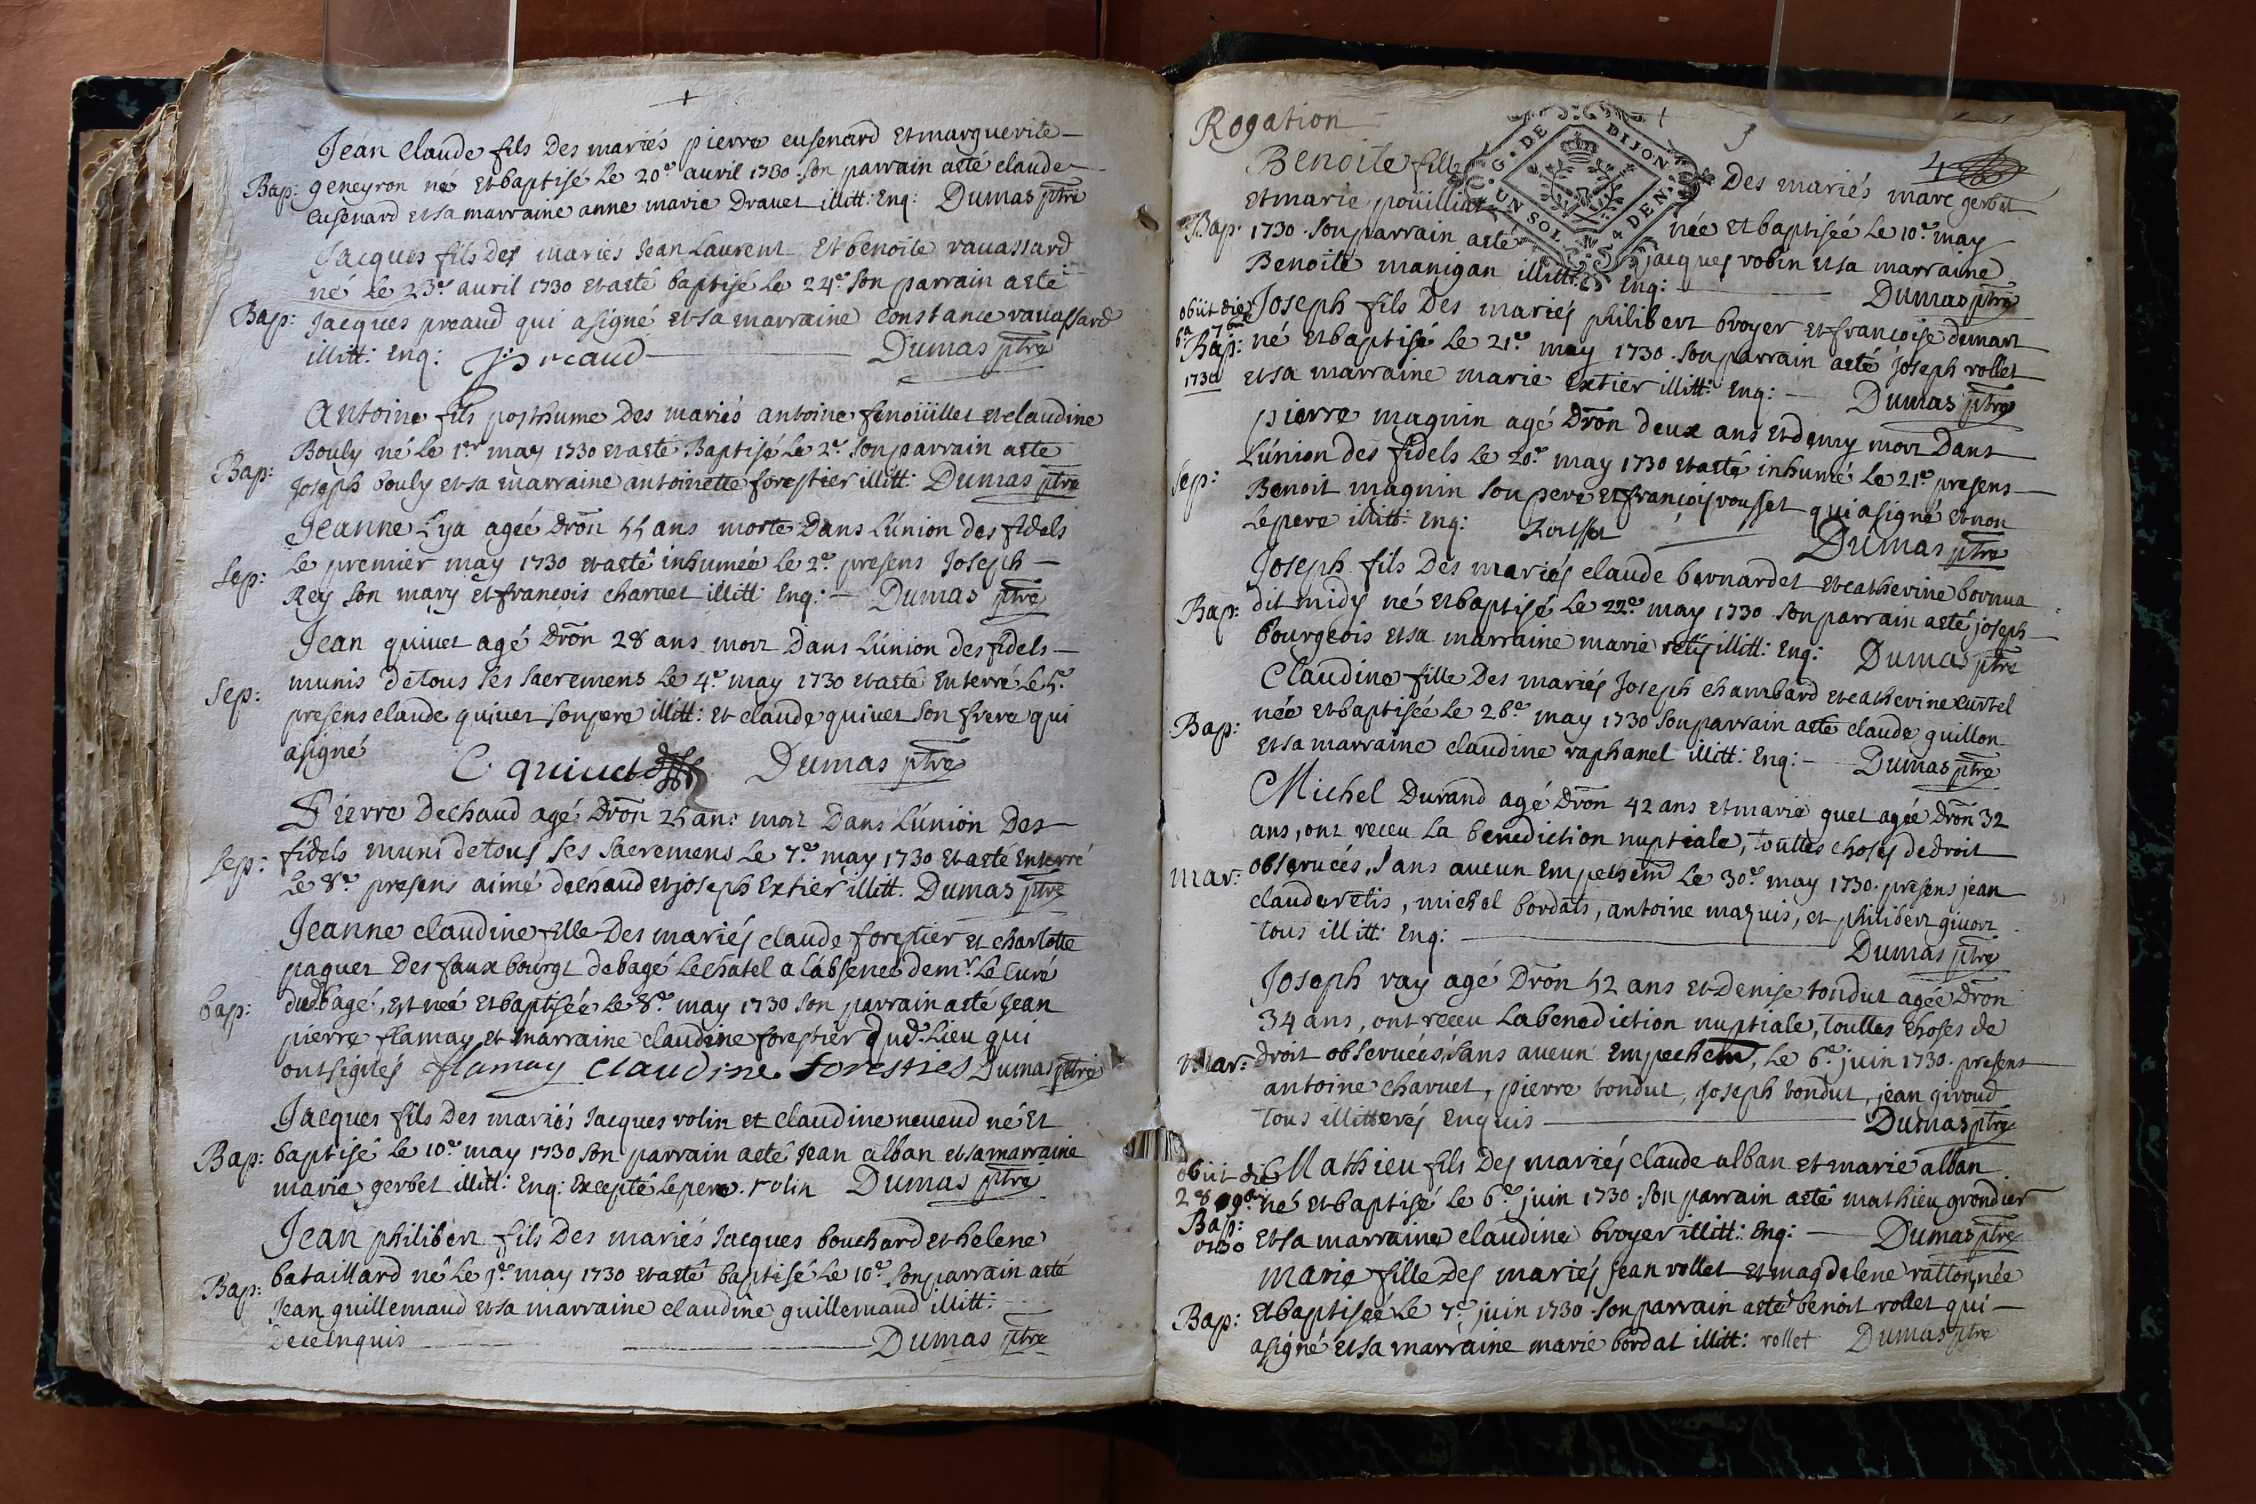 Jean Claude fils Des mariés pierre eusenard Et marguerite
Bap: geneyron né Et baptisé Le 20e avril 1730 son parrain aeté claude
eusenard et sa marraine anne marie Dravet illitt: Enq: Dumas ptre
Jacques fils Des mariés Jean Laurent Et benoite ravassard
né Le 23e avril 1730 et aeté baptisé Le 24e son parrain aeté
Bap: Jacques preaud qui a signé et sa marraine Constance ravassard
illitt: Enq: J preaud Dumas ptre
Antoine fils posthume Des mariés antoine fenoüillet et claudine
Bouly né Le 1er may 1730 et aeté Baptisé Le 2e son parrain aeté
Bap: Joseph bouly et sa marraine antoinette forestier illitt: Dumas ptre
Jeanne Lya ageé Dron 55 ans morte Dans L'union des fidels
Le premier may 1730 et aeté inhumeé Le 2e presens Joseph
Sep: Rey son mary et françois charvet illitt: Enq: Dumas ptre
Jean quivet agé Dron 28 ans mort Dans L'union des fidels
Sep: munis de tous ses sacremens Le 4e may 1730 et aeté Enterré Le 5e
presens claude quivet son pere illitt: Et claude quivet son frere qui
a signé C quivet Dumas ptre
Pierre Dechaud agé Dron 25 ans mort Dans L'union Des
Sep: fidels muni de tous ses sacremens Le 7e may 1730 Et aeté Enterré
Le 8e presens aimé dechaud et joseph Extier illitt. Dumas ptre
Jeanne claudine fille Des mariés claude forestier et charlotte
paquet Des faux bourgt de bagé Lechatel a L'absence de mr Le Curé
bap: dud bagé, est neé Et baptiseé Le 8e may 1730 son parrain aeté Jean
pierre flamay et marraine claudine forestier dud. Lieu qui
ont signés flamay Claudine forestier Dumas ptre
Jacques fils Des mariés Jacques rolin et claudine neveud né Et
Bap: baptisé Le 10e may 1730 son parrain aeté Jean alban et sa marraine
marie gerbet illitt: Enq: Excepté Le pere. rolin Dumas ptre
Jean philibert fils Des mariés Jacques bouchard et helene
bataillard né Le 9e may 1730 et aeté baptisé Le 10e son parrain aeté
Bap: Jean guillemaud et sa marraine claudine guillemaud illitt:
de ce Enquis Dumas ptre
Rogation
4
G. DE DIJON
UN SOL 4 DEN.
Benoite fille Des mariés marc gerbet
et marie poüilliat née Et baptisée Le 10e may
Bap: 1730 son parrain aeté jacques robin et sa marraine
Benoite manigan illitt: Enq: Dumas ptre
obiit die
Joseph fils Des mariés philibert broyer et françoise dumart
Bap: né et baptisé Le 21e may 1730 son parrain aeté joseph rollet
1730 et sa marraine marie Extier illitt: Enq: Dumas ptre
pierre maguin agé Dron deux ans et demy mort Dans
L'union des fidels Le 20e may 1730 et aeté inhumé Le 21e presens
Sep: Benoit maguin son pere et françois rousset qui a signé et non
Le pere illitt: Enq: Rousset Dumas ptre
Joseph fils Des mariés claude bernardet et catherine bornua
Bap: dit midy né et baptisé Le 22e may 1730 son parrain aeté joseph
bourgeois et sa marraine marie retis illitt: Enq: Dumas ptre
Claudine fille Des mariés Joseph chambard et catherine Curtel
Bap: née et baptisée Le 26e may 1730 son parrain aeté claude guillon
et sa marraine claudine raphanel illitt: Enq: Dumas ptre
Michel Durand agé Dron 42 ans et marie guet agée Dron 32
ans, ont receu La benediction nuptiale, toutes choses de droit
mar: obseruées, sans aucun Empechem Le 30e may 1730. presens jean
claude retis, michel bordats, antoine maquis, et philibert givort
tous illitt: Enq: Dumas ptre
Joseph ray agé Dron 52 ans et Denise tondut agée Dron
34 ans, ont receu La benediction nuptiale, toutes choses de
mar: droit obseruées, sans aucun Empechem, Le 6e juin 1730. present
antoine charvet, pierre tondut, Joseph tondut, jean giroud
tous illitterés Enquis Dumas ptre
obiit die
Mathieu fils Des mariés claude alban et marie alban
né et baptisé Le 6e juin 1730 son parrain aeté mathieu grondier
Bap: et sa marraine claudine broyer illitt: Enq: Dumas ptre
marie fille Des mariés jean rollet et magdelene ratton, née
Bap: Et baptiseé Le 7e juin 1730 son parrain aeté benoit rollet qui
a signé et sa marraine marie bordat illitt: rollet Dumas ptre